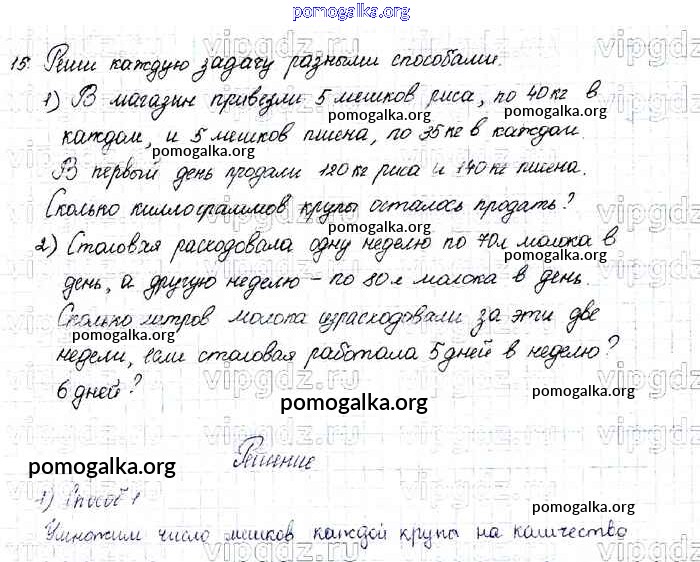 pomogalka.org
15. Реши каждую задачу разными способами.
1) В магазин привезли 5 мешков риса, по 40 кг в
каждом, и 5 мешков пшена, по 35 кг в каждом.
pomogalka.org
pomogalka.org
В первый день продали 120 кг риса и 140 кг пшена.
pomogalka.org
Сколько киллограммов крупы осталось продать?
pomogalka.org
2) Столовая расходовала одну неделю по 70 л молока в
pomogalka.org
день, а другую неделю - по 80 л молока в день.
pomogalka.org
Сколько литров молока израсходовали за эти две
pomogalka.org
недели, если столовая работала 5 дней в неделю?
6 дней?
pomogalka.org
pomogalka.org
Решение
pomogalka.org
1) Способ 1
pomogalka.org
Умножим число мешков каждой крупы на количество
pomogalka.org
vipgdz.ru